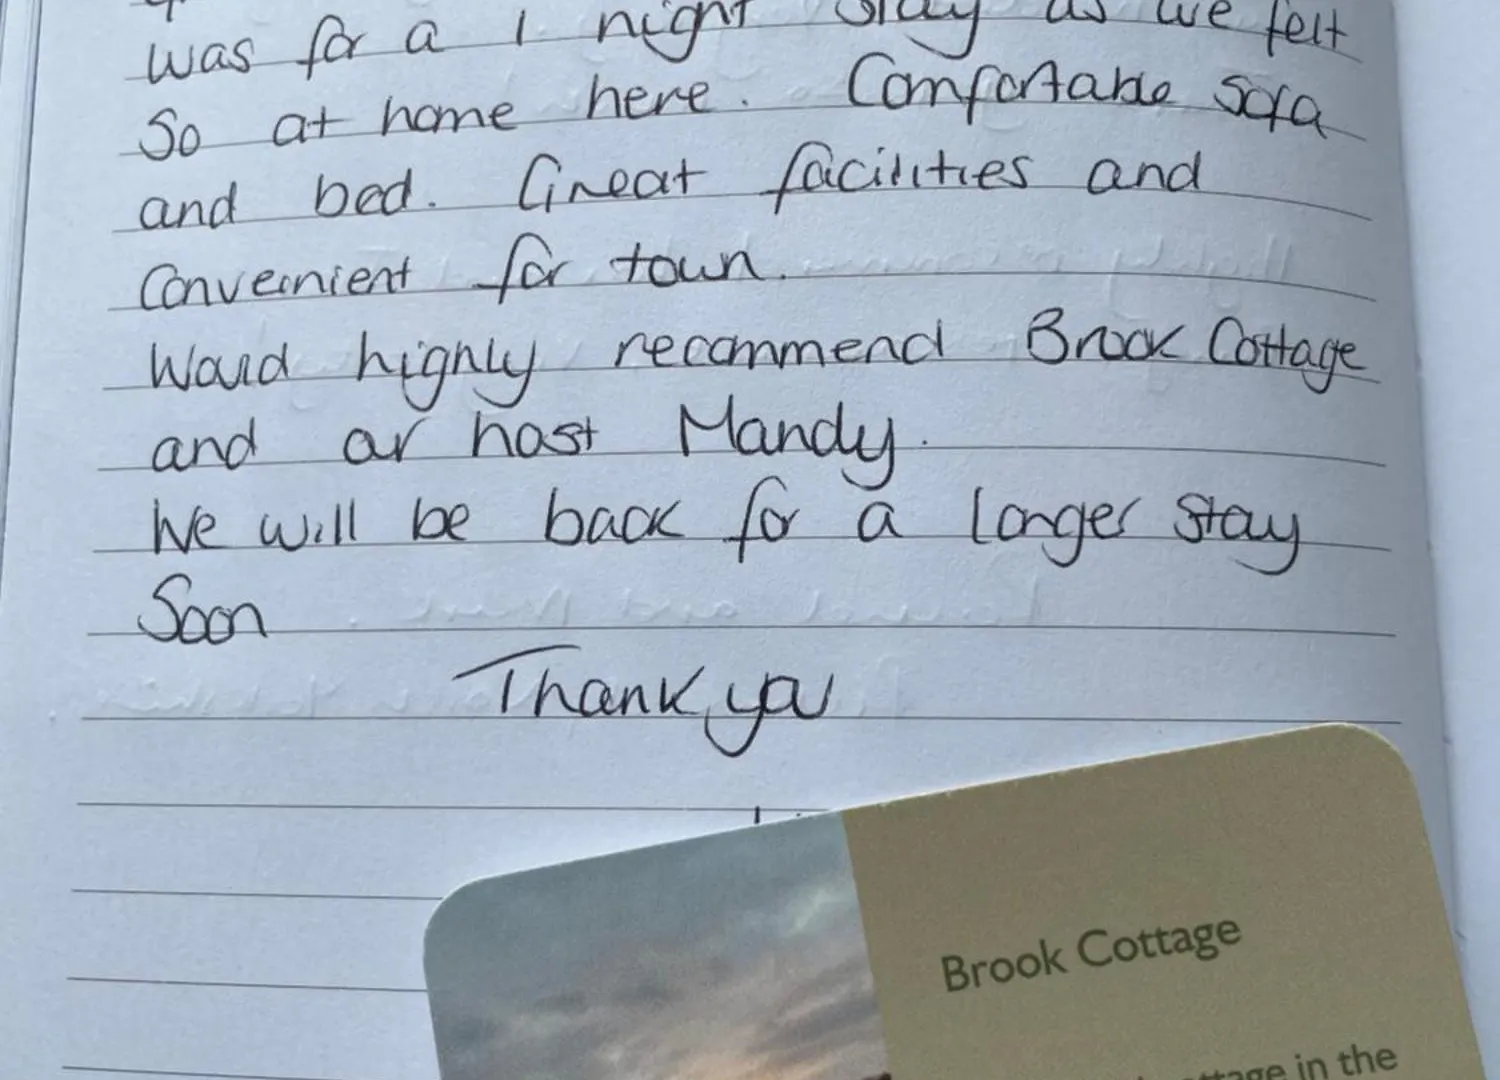 was for a 1 night stay as we felt
So at home here. Comfortable sofa
and bed. Great facilities and
Convenient for town.
Would highly recommend Brook Cottage
and our host Mandy.
We will be back for a longer stay
Soon
Thank you
Brook Cottage
in the